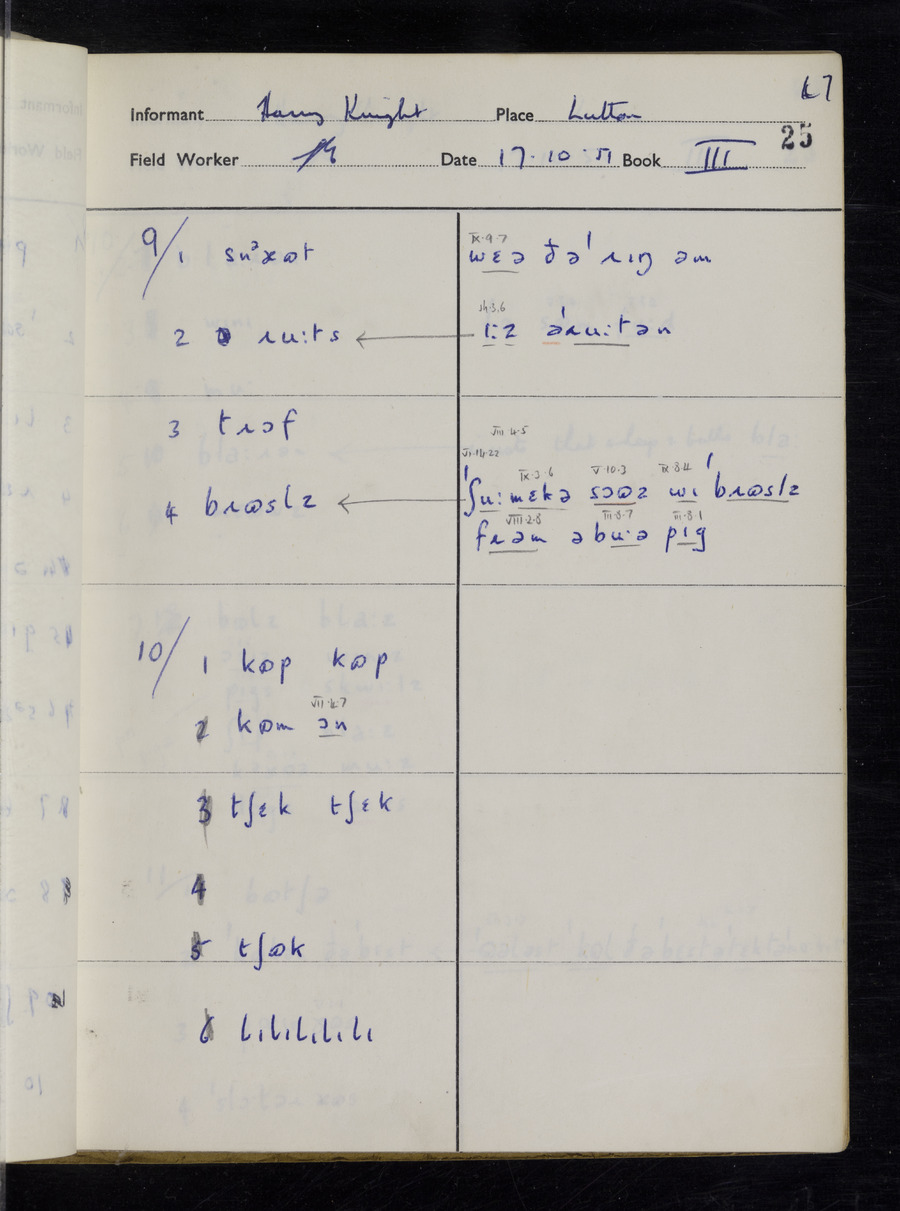 L7
Informant Harry Knight Place Lutton
25
Field Worker Date 17.10.51 Book III
9/1 snᵊɷət
IX.9.7
wɛə ðə ˈɹɪŋ əm
2 ɹuːts
ɪːz əˈɹuːtən
3 tɹɔf
VIII 4.5
4 bɹɷslz
VI.14.22 IX.3.6 V.10.3 IX.8.4
ˈʃuːmɛkə sɔɷz wɪ ˈbɹɷslz
VIII.2.8 III.8.7 III.8.1
fɹəm əbuːə pɪg
10/1 kɷp kɷp
VII.4.7
2 kɷm ɔn
3 tʃɛk tʃɛk
4
5 tʃɷk
6 lɪlɪlɪlɪlɪ